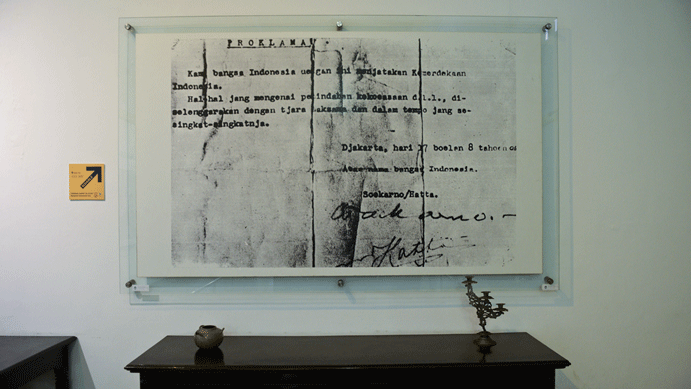 PROKLAMA
Kami bangsa Indonesia dengan ini menjatakan Kemerdekaan
Indonesia.
Hal-hal jang mengenai pemindahan kekoeasaan d.l.l., di-
selenggarakan dengan tjara saksama dan dalam tempo jang se-
singkat-singkatnja.
Djakarta, hari 17 boelan 8 tahoen 05
Atas nama bangsa Indonesia.
Soekarno/Hatta.
Soekarno.-
Hatta